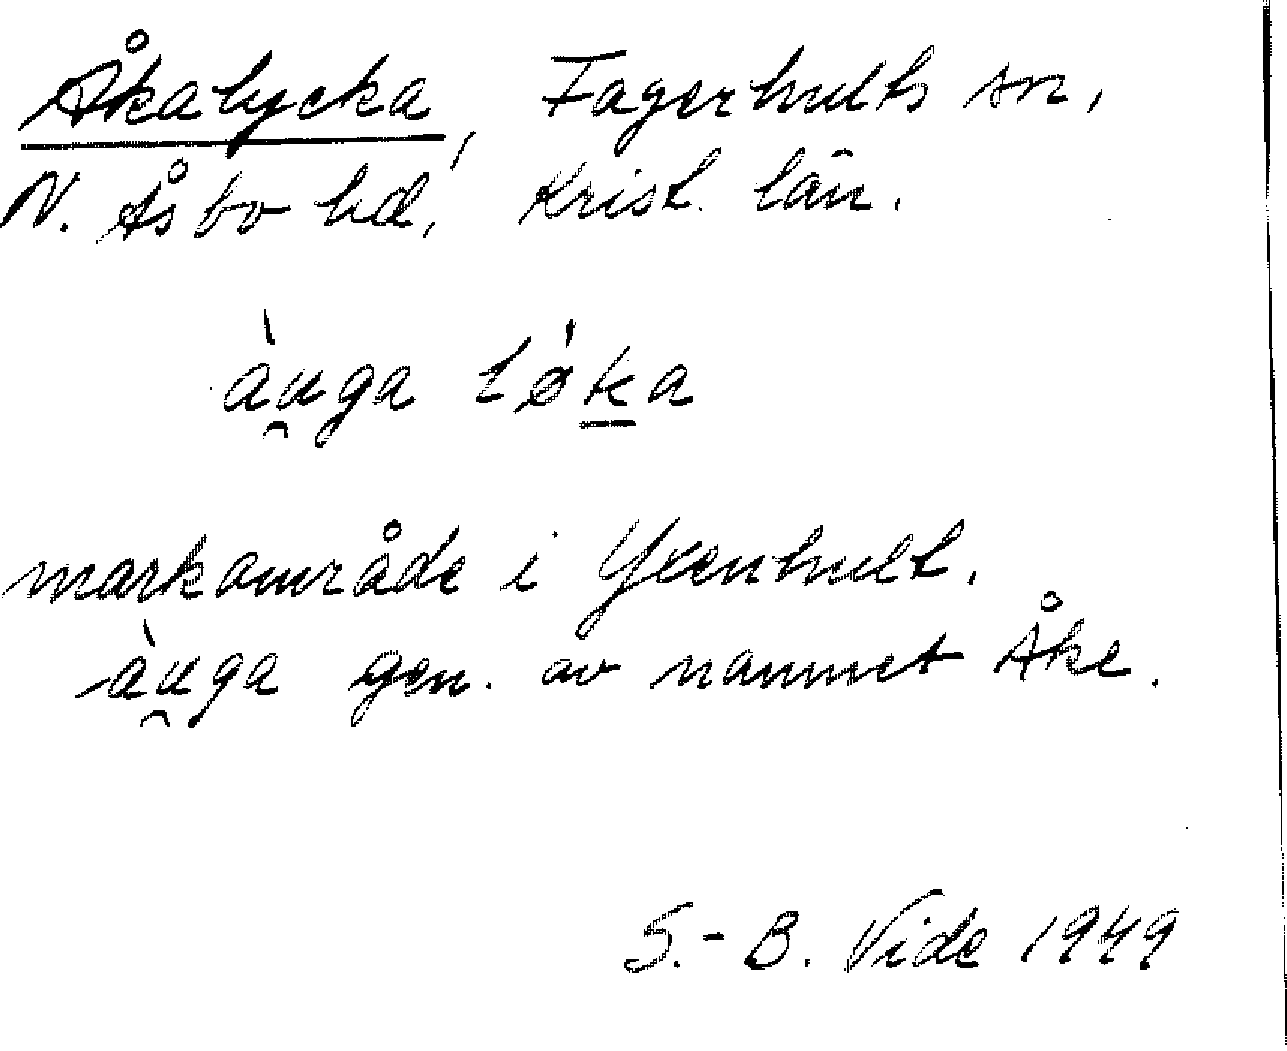 Åkalycka, Fagerhults sn,
N. Åsbo hd, Krist. län.
àu̯ga lø̀ḵa
markområde i Yxenhult.
àu̯ga gen. av namnet Åke.
S.-B. Vide 1949